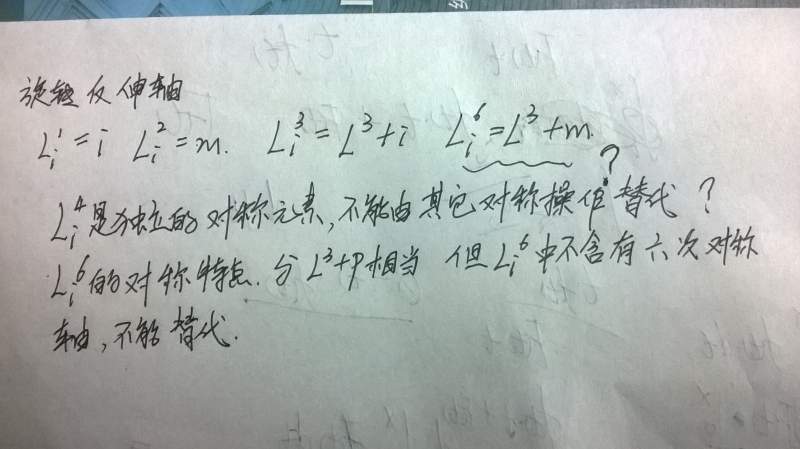 旋转反伸轴
Lᵢ¹=i Lᵢ²=m. Lᵢ³=L³+i Lᵢ⁶=L³+m.
?
Lᵢ⁴是独立的对称元素,不能由其它对称操作替代?
Lᵢ⁶的对称特点.与L³+P相当 但Lᵢ⁶中不含有六次对称
轴,不能替代.